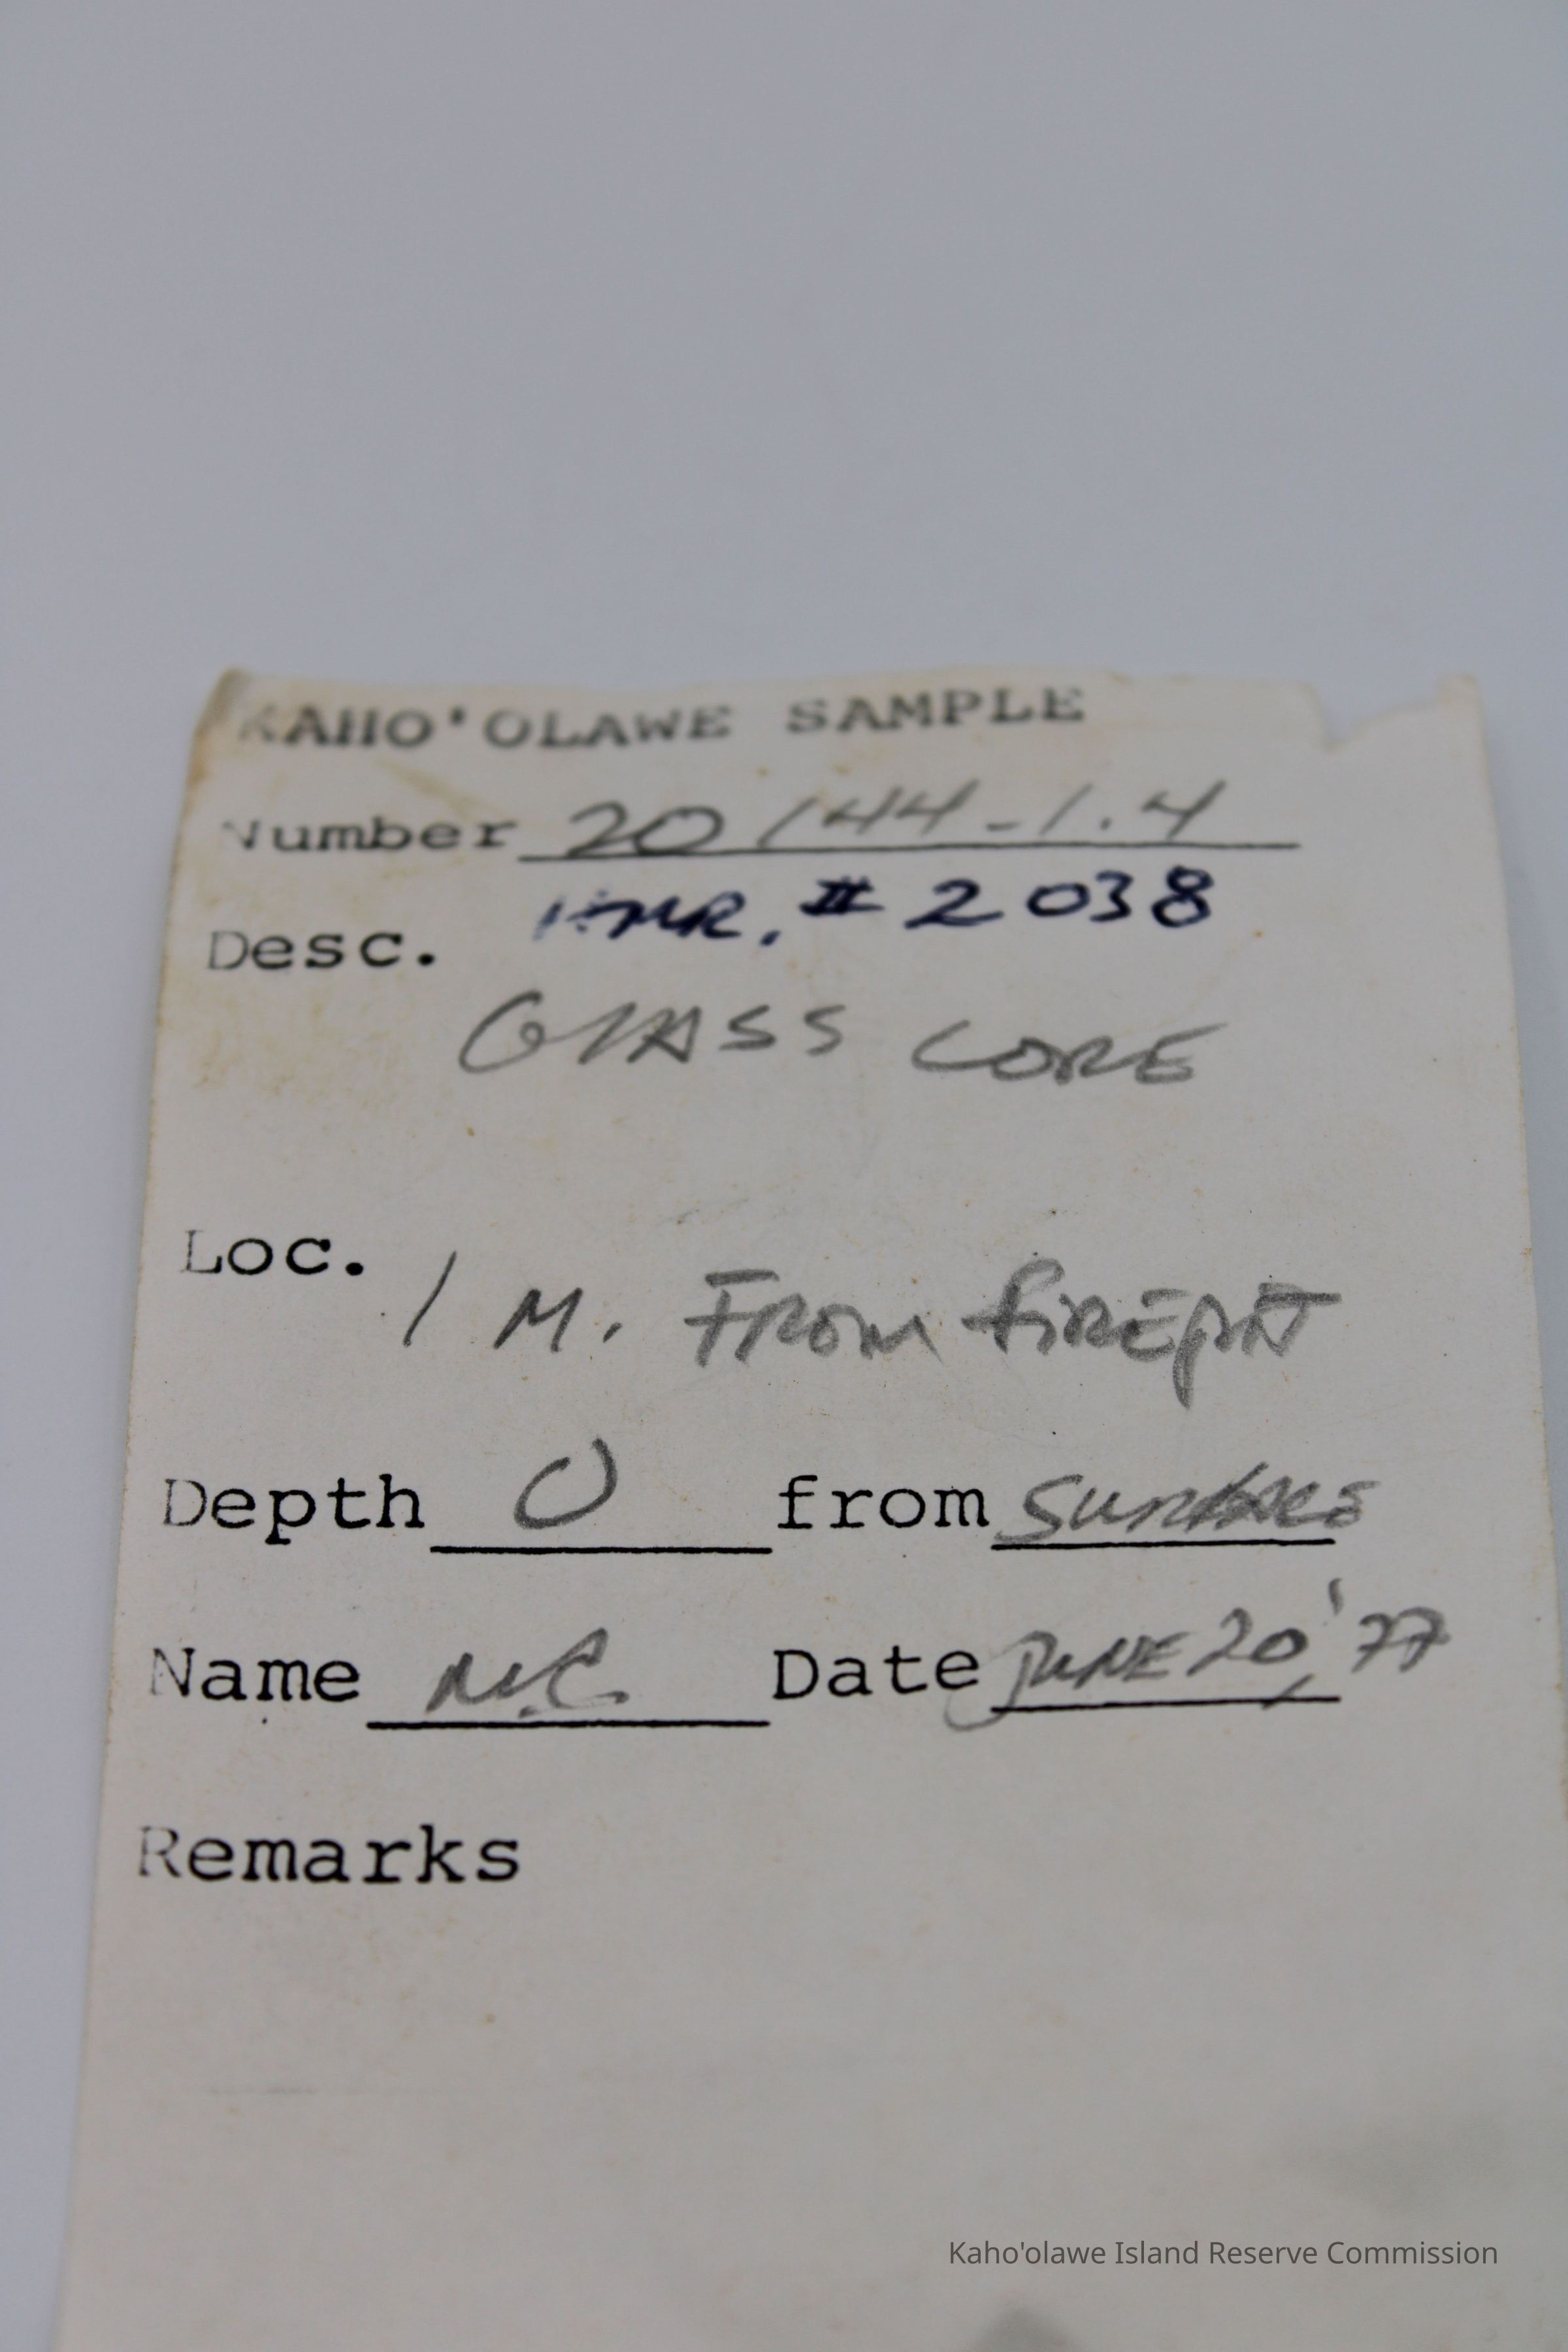 KAHO'OLAWE SAMPLE
Number 20144-1.4
HMR. # 2038
Desc.
GLASS CORE
Loc.
1 M. FROM FIREPIT
Depth 0 from SURFACE
Name N.C. Date JUNE 20, '77
Remarks
Kaho'olawe Island Reserve Commission